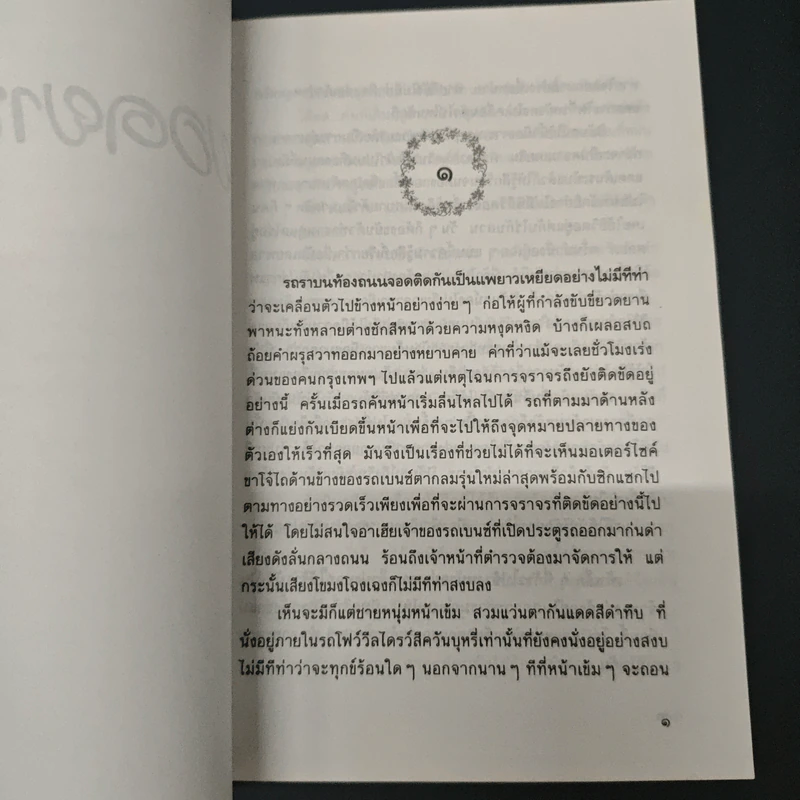 ๑
รถราบนท้องถนนจอดติดกันเป็นแพยาวเหยียดอย่างไม่มีทีท่า
ว่าจะเคลื่อนตัวไปข้างหน้าอย่างง่าย ๆ ก่อให้ผู้ที่กำลังขับขี่ยวดยาน
พาหนะทั้งหลายต่างชักสีหน้าด้วยความหงุดหงิด บ้างก็เผลอสบถ
ถ้อยคำผรุสวาทออกมาอย่างหยาบคาย ค่าที่ว่าแม้จะเลยชั่วโมงเร่ง
ด่วนของคนกรุงเทพฯ ไปแล้วแต่เหตุไฉนการจราจรถึงยังติดขัดอยู่
อย่างนี้ ครั้นเมื่อรถคันหน้าเริ่มลื่นไหลไปได้ รถที่ตามมาด้านหลัง
ต่างก็แย่งกันเบียดขึ้นหน้าเพื่อที่จะไปให้ถึงจุดหมายปลายทางของ
ตัวเองให้เร็วที่สุด มันจึงเป็นเรื่องที่ช่วยไม่ได้ที่จะเห็นมอเตอร์ไซค์
ขาโจ๋ไถด้านข้างของรถเบนซ์ตากลมรุ่นใหม่ล่าสุดพร้อมกับซิกแซกไป
ตามทางอย่างรวดเร็วเพียงเพื่อที่จะผ่านการจราจรที่ติดขัดอย่างนี้ไป
ให้ได้ โดยไม่สนใจอาเฮียเจ้าของรถเบนซ์ที่เปิดประตูรถออกมาก่นด่า
เสียงดังลั่นกลางถนน ร้อนถึงเจ้าหน้าที่ตำรวจต้องมาจัดการให้ แต่
กระนั้นเสียงโขมงโฉงเฉงก็ไม่มีทีท่าสงบลง
เห็นจะมีก็แต่ชายหนุ่มหน้าเข้ม สวมแว่นตากันแดดสีดำทึบ ที่
นั่งอยู่ภายในรถโฟว์วีลไดรว์สีควันบุหรี่เท่านั้นที่ยังคงนั่งอยู่อย่างสงบ
ไม่มีทีท่าว่าจะทุกข์ร้อนใด ๆ นอกจากนาน ๆ ทีที่หน้าเข้ม ๆ จะถอน
๑